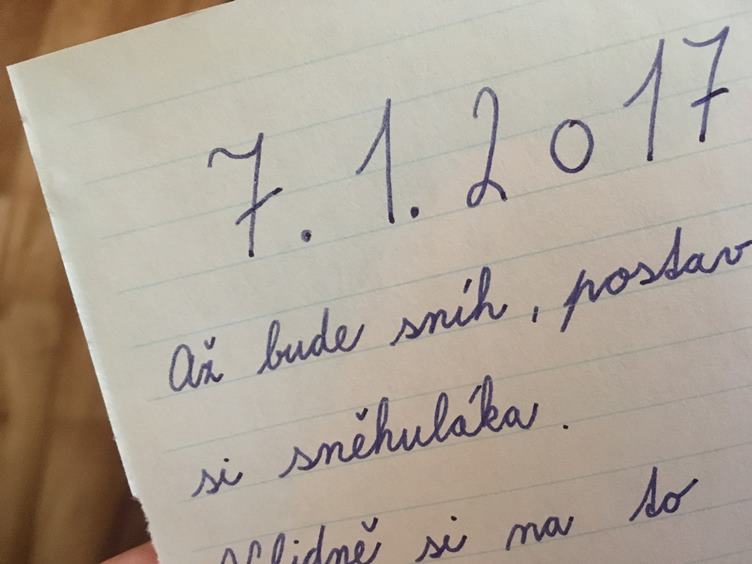 7. 1. 2017
Až bude sníh, postav
si sněhuláka.
Klidně si na to